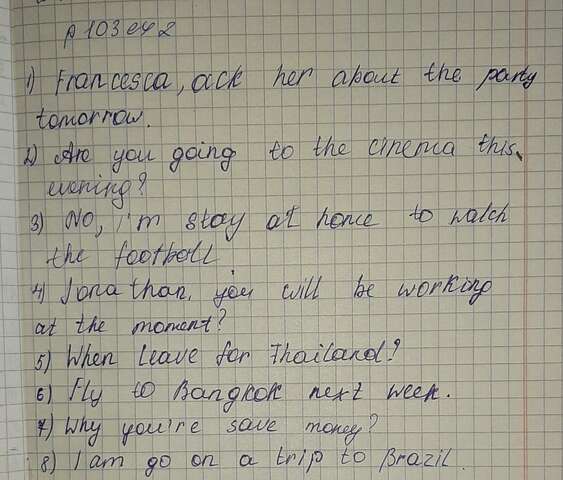 p 103 ex 2
1) Francesca, ack her about the party
tomorrow.
2) Are you going to the cinema this
evening?
3) No, I'm stay at home to watch
the football
4) Jonathan, you will be working
at the moment?
5) When leave for Thailand?
6) Fly to Bangkok next week.
7) Why you're save money?
8) I am go on a trip to Brazil.